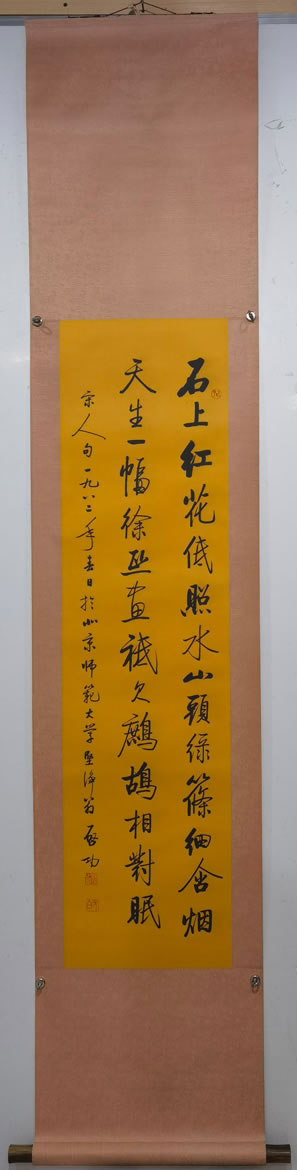 石上红花低照水山頭绿篠细含烟
天生一幅徐熙画祗欠鷓鴣相對眠
宋人句一九八二年春日於北京师範大学坚净翁启功